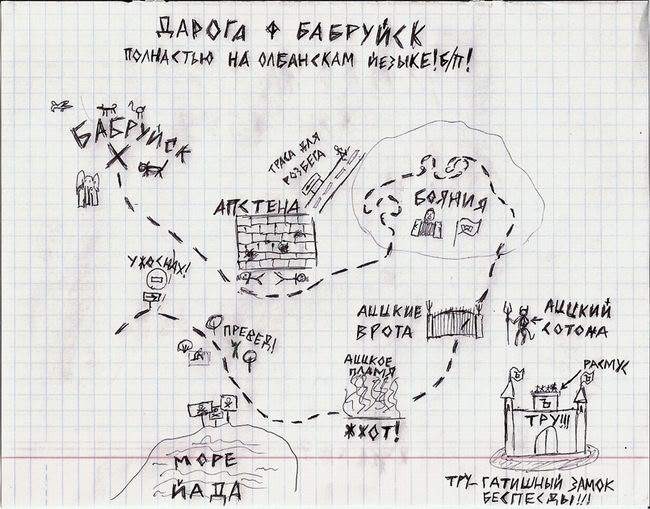 ДАРОГА Ф БАБРУЙСК
ПОЛНАСТЬЮ НА ОЛБАНСКАМ ЙЕЗЫКЕ! Б/П!
БАБРУЙСК
ТРАСА ДЛЯ
РОЗБЕГА
БОЯНИЯ
АПСТЕНА
УЖОСНАХ!
ПРЕВЕД!
АЦЦКИЕ
ВРОТА
АЦЦКИЙ
СОТОНА
АЦЦКОЕ
ПЛАМЯ
ЖЖОТ!
РАСМУС
Ъ
ТРУ!!!
МОРЕ
ЙАДА
ТРУ-ГАТИШНЫЙ ЗАМОК
БЕСПЕСДЫ!!!